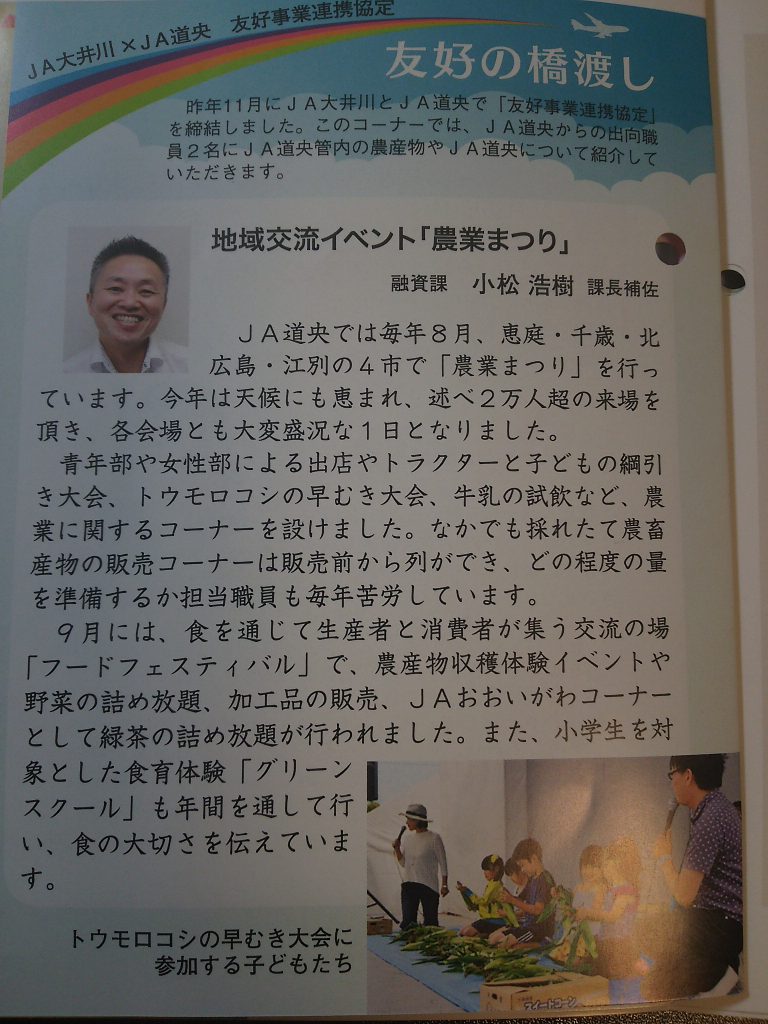 JA大井川×JA道央　友好事業連携協定
友好の橋渡し
昨年11月にJA大井川とJA道央で「友好事業連携協定」
を締結しました。このコーナーでは、JA道央からの出向職
員2名にJA道央管内の農産物やJA道央について紹介して
いただきます。
地域交流イベント「農業まつり」
融資課　小松 浩樹 課長補佐
JA道央では毎年8月、恵庭・千歳・北
広島・江別の4市で「農業まつり」を行っ
ています。今年は天候にも恵まれ、述べ2万人超の来場を
頂き、各会場とも大変盛況な1日となりました。
青年部や女性部による出店やトラクターと子どもの綱引
き大会、トウモロコシの早むき大会、牛乳の試飲など、農
業に関するコーナーを設けました。なかでも採れたて農畜
産物の販売コーナーは販売前から列ができ、どの程度の量
を準備するか担当職員も毎年苦労しています。
9月には、食を通じて生産者と消費者が集う交流の場
「フードフェスティバル」で、農産物収穫体験イベントや
野菜の詰め放題、加工品の販売、JAおおいがわコーナー
として緑茶の詰め放題が行われました。また、小学生を対
象とした食育体験「グリーン
スクール」も年間を通して行
い、食の大切さを伝えていま
す。
トウモロコシの早むき大会に
参加する子どもたち
スイートコーン